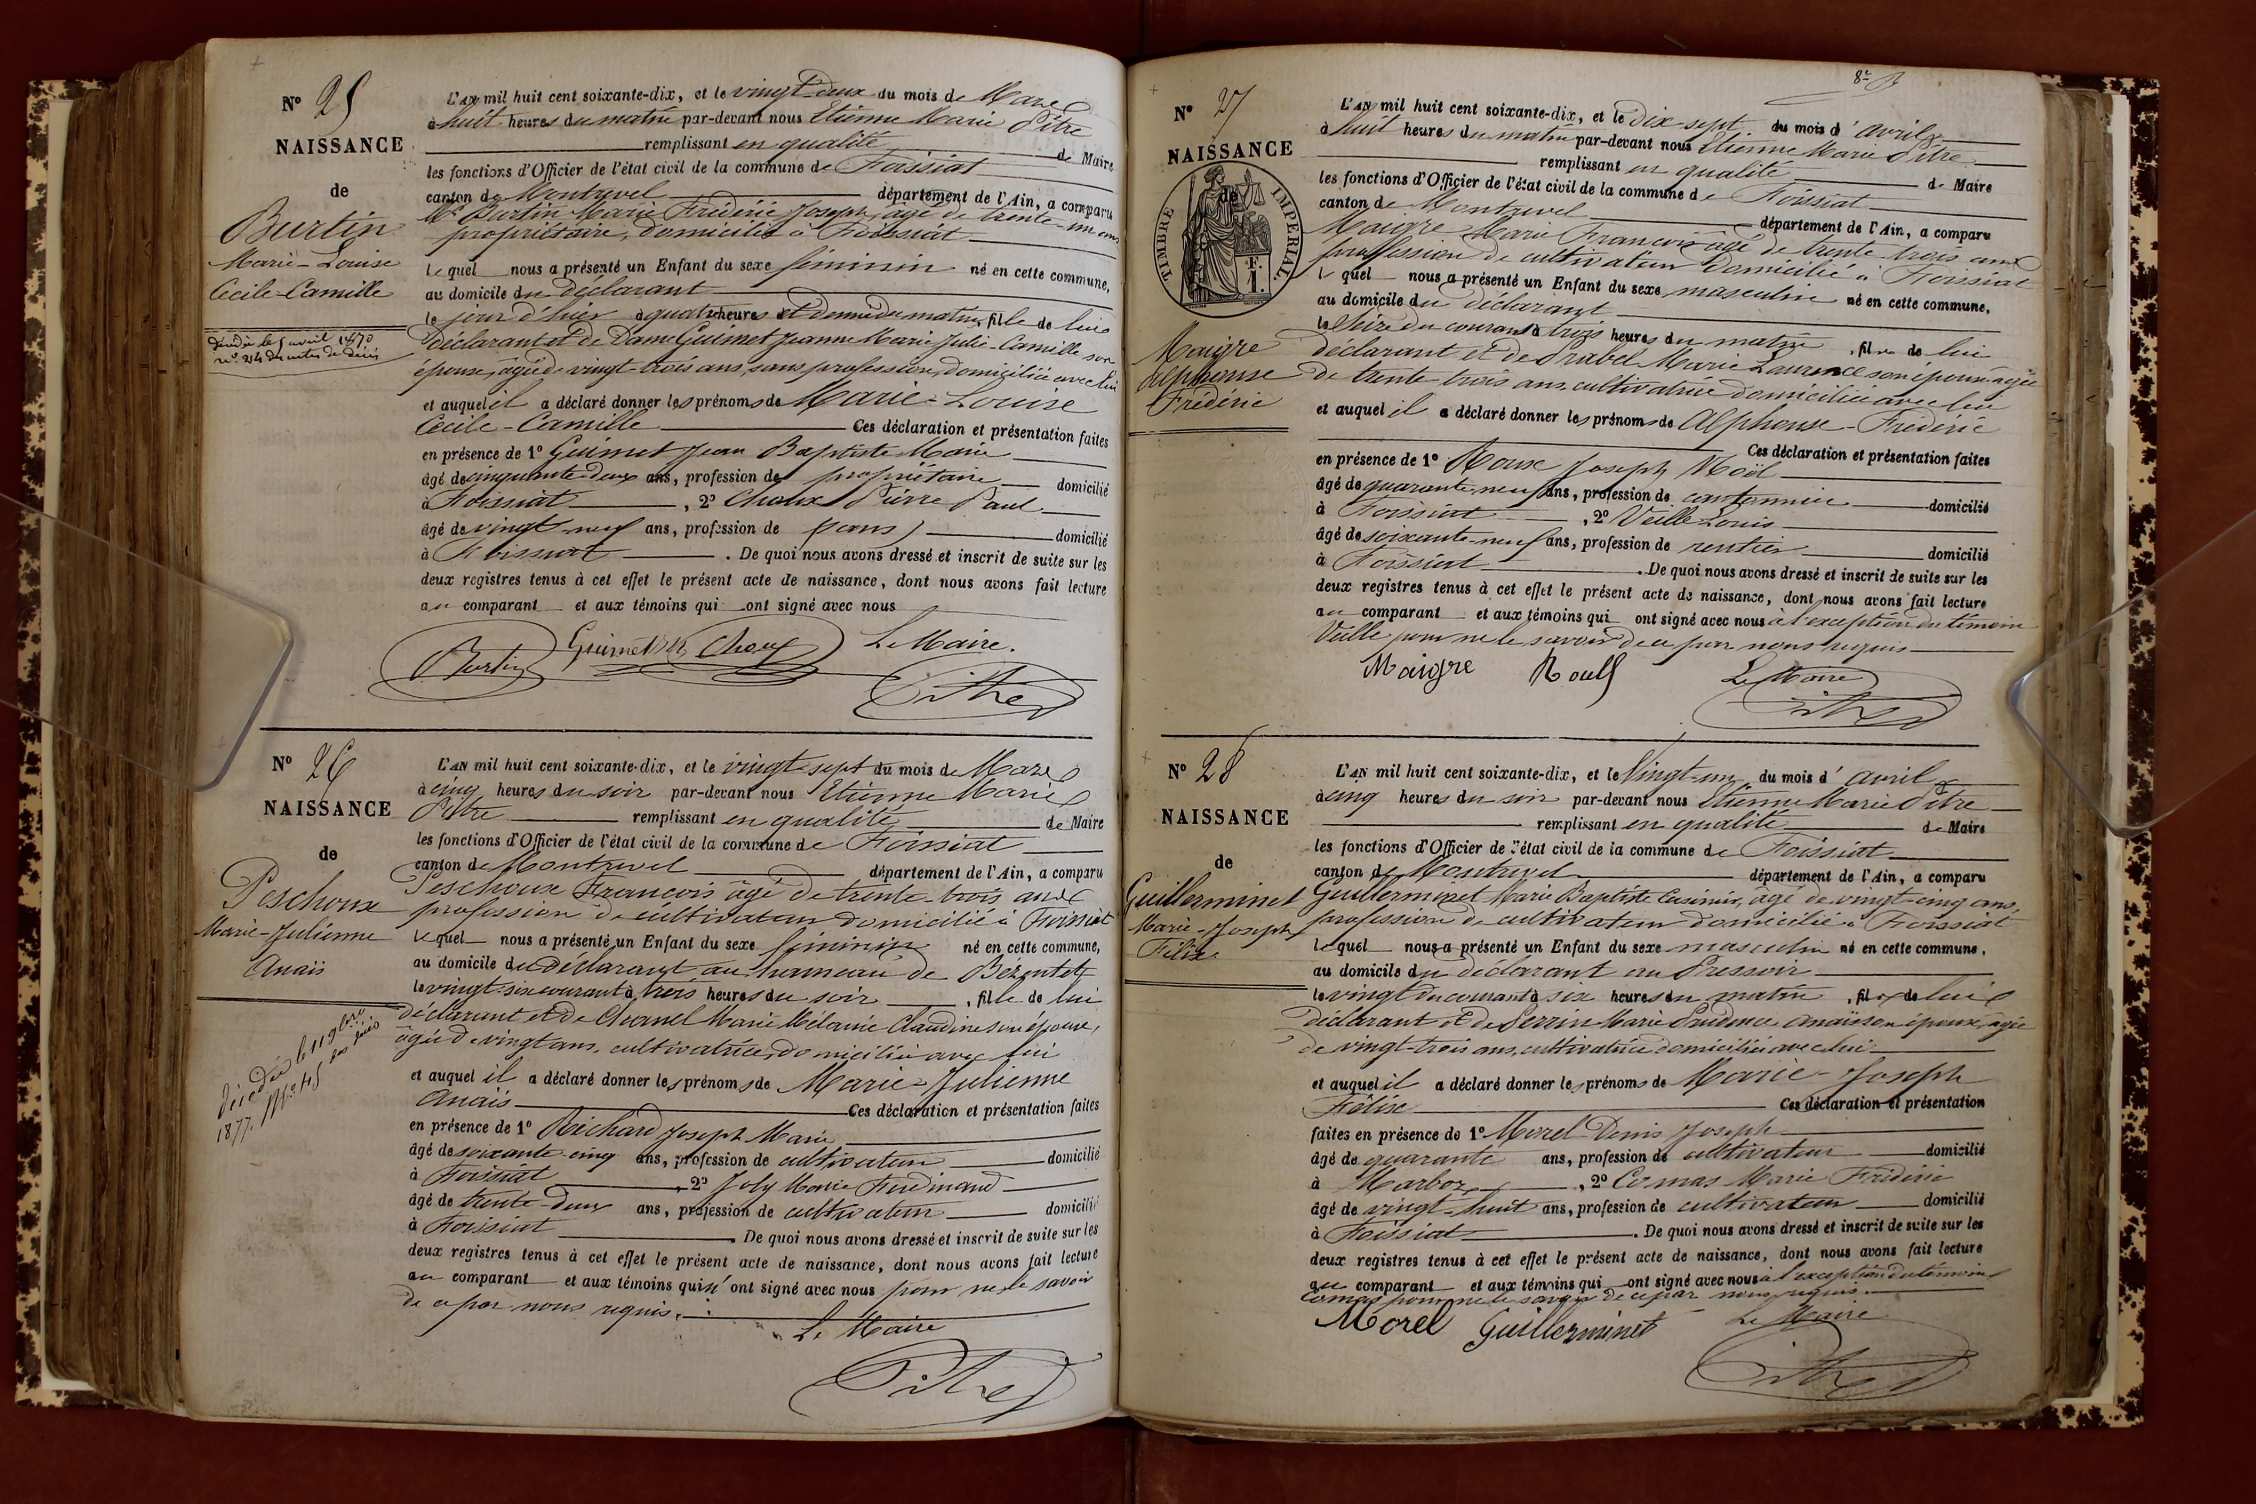 N° 25
NAISSANCE
de
Burtin
Marie-Louise
Cécile-Camille
décédée le 5 avril 1870
L'AN mil huit cent soixante-dix, et le vingt-deux du mois de Mars
à huit heures du matin par-devant nous Etienne Marie Pitre
remplissant en qualité de Maire
les fonctions d'Officier de l'état civil de la commune de Foissiat
canton de Montrevel département de l'Ain, a comparu
Mr Burtin Marie Frédéric Joseph, âgé de trente-un ans
propriétaire, domicilié à Foissiat
lequel nous a présenté un Enfant du sexe féminin né en cette commune,
au domicile du déclarant
le jour d'hier à quatre heures et demie du matin, fille de lui
déclarant et de Dame Guimet Jeanne Marie Julie-Camille son
épouse, âgée de vingt-trois ans, sans profession, domiciliée avec lui
et auquel il a déclaré donner les prénoms de Marie-Louise
Cécile-Camille Ces déclaration et présentation faites
en présence de 1° Guimet Jean Baptiste Marie
âgé de cinquante-deux ans, profession de propriétaire domicilié
à Foissiat, 2° Choux Pierre Paul
âgé de vingt-neuf ans, profession de (sans) domicilié
à Foissiat. De quoi nous avons dressé et inscrit de suite sur les
deux registres tenus à cet effet le présent acte de naissance, dont nous avons fait lecture
au comparant et aux témoins qui ont signé avec nous
Burtin Guimet Choux Le Maire.
Pitre
N° 26
NAISSANCE
de
Peschoux
Marie-Julienne
Anaïs
décédée le 11 9bre
1877
L'AN mil huit cent soixante-dix, et le vingt-sept du mois de Mars
à cinq heures du soir par-devant nous Etienne Marie
Pitre remplissant en qualité de Maire
les fonctions d'Officier de l'état civil de la commune de Foissiat
canton de Montrevel département de l'Ain, a comparu
Peschoux François âgé de trente-trois ans
profession de cultivateur domicilié à Foissiat
lequel nous a présenté un Enfant du sexe féminin né en cette commune,
au domicile du déclarant au hameau de Bézentet
le vingt-six courant à trois heures du soir, fille de lui
déclarant et de Chanel Marie Mélanie Claudine son épouse,
âgée de vingt ans, cultivatrice, domiciliée avec lui
et auquel il a déclaré donner les prénoms de Marie-Julienne
Anaïs Ces déclaration et présentation faites
en présence de 1° Richard Joseph Marie
âgé de soixante-cinq ans, profession de cultivateur domicilié
à Foissiat, 2° Joly Marie Ferdinand
âgé de trente-deux ans, profession de cultivateur domicilié
à Foissiat. De quoi nous avons dressé et inscrit de suite sur les
deux registres tenus à cet effet le présent acte de naissance, dont nous avons fait lecture
au comparant et aux témoins qui n'ont signé avec nous pour ne le savoir
de ce par nous requis.
Le Maire
Pitre
N° 27
NAISSANCE
de
TIMBRE IMPERIAL
1 F.
Maigre
Alphonse
Frédéric
L'AN mil huit cent soixante-dix, et le Dix-sept du mois d'avril
à huit heures du matin par-devant nous Etienne Marie Pitre
remplissant en qualité de Maire
les fonctions d'Officier de l'état civil de la commune de Foissiat
canton de Montrevel département de l'Ain, a comparu
Maigre Marie François âgé de trente-trois ans
profession de cultivateur domicilié à Foissiat
lequel nous a présenté un Enfant du sexe masculin né en cette commune,
au domicile du déclarant
le seize du courant à trois heures du matin, fils de lui
déclarant et de Drabel Marie Laurence son épouse âgée
de trente-trois ans, cultivatrice domiciliée avec lui
et auquel il a déclaré donner les prénoms de Alphonse-Frédéric
Ces déclaration et présentation faites
en présence de 1° Roux Joseph Noël
âgé de quarante-neuf ans, profession de cantonnier domicilié
à Foissiat, 2° Veille Louis
âgé de soixante-neuf ans, profession de rentier domicilié
à Foissiat. De quoi nous avons dressé et inscrit de suite sur les
deux registres tenus à cet effet le présent acte de naissance, dont nous avons fait lecture
au comparant et aux témoins qui ont signé avec nous à l'exception du témoin
Veille pour ne le savoir de ce par nous requis
Maigre Le Maire
Pitre
N° 28
NAISSANCE
de
Guillerminet
Marie-Joseph
Félix
L'AN mil huit cent soixante-dix, et le Vingt-un du mois d'avril
à cinq heures du soir par-devant nous Etienne Marie Pitre
remplissant en qualité de Maire
les fonctions d'Officier de l'état civil de la commune de Foissiat
canton de Montrevel département de l'Ain, a comparu
Guillerminet Marie Baptiste Casimir, âgé de vingt-cinq ans,
profession de cultivateur domicilié à Foissiat
lequel nous a présenté un Enfant du sexe masculin né en cette commune,
au domicile du déclarant au Pressoir
le vingt du courant à six heures du matin, fils de lui
déclarant et de Perrin Marie Prudence Anaïs son épouse, âgée
de vingt-trois ans, cultivatrice domiciliée avec lui
et auquel il a déclaré donner les prénoms de Marie-Joseph
Félix Ces déclaration et présentation
faites en présence de 1° Morel Denis Joseph
âgé de quarante ans, profession de cultivateur domicilié
à Marboz, 2° Comas Marie Frédéric
âgé de vingt-huit ans, profession de cultivateur domicilié
à Foissiat. De quoi nous avons dressé et inscrit de suite sur les
deux registres tenus à cet effet le présent acte de naissance, dont nous avons fait lecture
au comparant et aux témoins qui ont signé avec nous à l'exception du témoin
Comas pour ne le savoir de ce par nous requis.
Morel Guillerminet Le Maire
Pitre